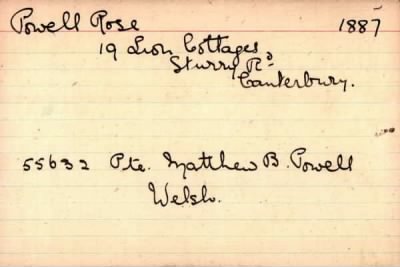 Powell Rose 1887
19 Lion Cottages
Sturry Rd
Canterbury.
55632 Pte. Matthew B. Powell
Welsh.